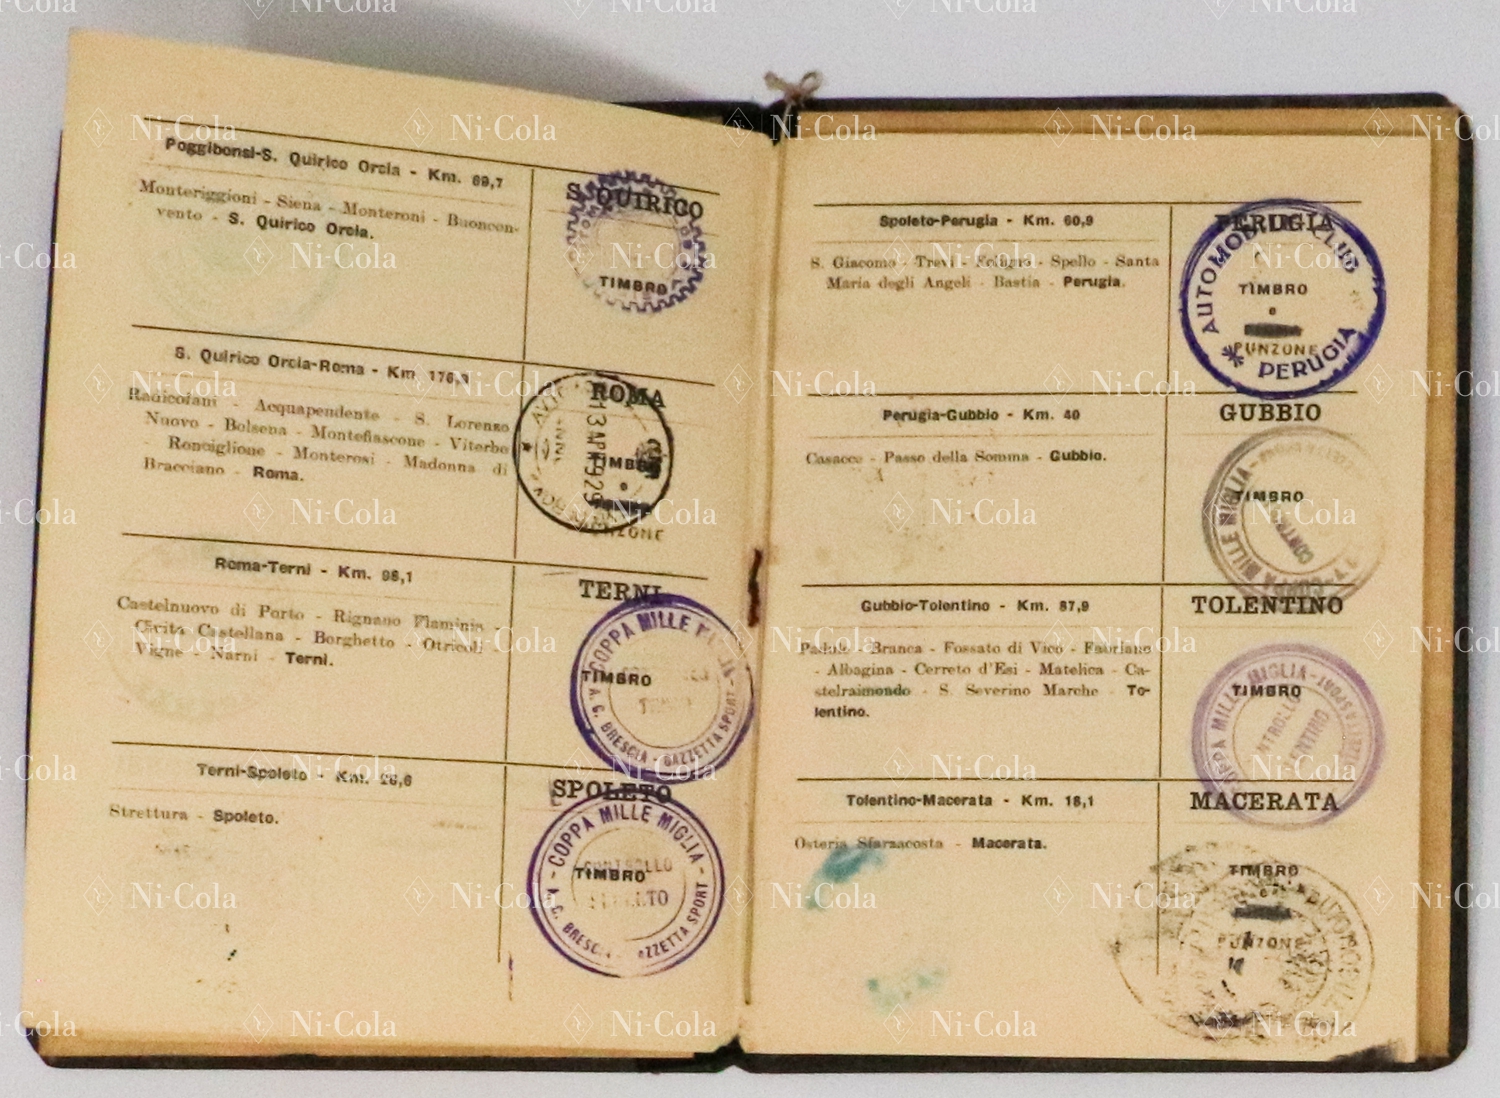 Poggibonsi-S. Quirico Orcia - Km. 69,7
Monteriggioni - Siena - Monteroni - Buoncon-
vento - S. Quirico Orcia.
S. QUIRICO
TIMBRO
S. Quirico Orcia-Roma - Km. 176,3
Radicofani - Acquapendente - S. Lorenzo
Nuovo - Bolsena - Montefiascone - Viterbo
- Ronciglione - Monterosi - Madonna di
Bracciano - Roma.
ROMA
13 APR 1929
TIMBRO
e
PUNZONE
Roma-Terni - Km. 98,1
Castelnuovo di Porto - Rignano Flaminio -
Civita Castellana - Borghetto - Otricoli
Vigne - Narni - Terni.
TERNI
COPPA MILLE MIGLIA
TIMBRO
A. C. BRESCIA - GAZZETTA SPORT
Terni-Spoleto - Km. 26,6
Strettura - Spoleto.
SPOLETO
COPPA MILLE MIGLIA
CONTROLLO
TIMBRO
SPOLETO
A. C. BRESCIA - GAZZETTA SPORT
Spoleto-Perugia - Km. 60,9
S. Giacomo - Trevi - Foligno - Spello - Santa
Maria degli Angeli - Bastia - Perugia.
PERUGIA
AUTOMOBILE CLUB
TIMBRO
e
PUNZONE
PERUGIA
Perugia-Gubbio - Km. 40
Casacce - Passo della Somma - Gubbio.
GUBBIO
TIMBRO
COPPA MILLE MIGLIA
Gubbio-Tolentino - Km. 87,9
Padule - Branca - Fossato di Vico - Fabriano
- Albagina - Cerreto d'Esi - Matelica - Ca-
stelraimondo - S. Severino Marche - To-
lentino.
TOLENTINO
COPPA MILLE MIGLIA
TIMBRO
CONTROLLO
TOLENTINO
Tolentino-Macerata - Km. 18,1
Osteria Sfarzacosta - Macerata.
MACERATA
TIMBRO
e
PUNZONE
Ni-Cola